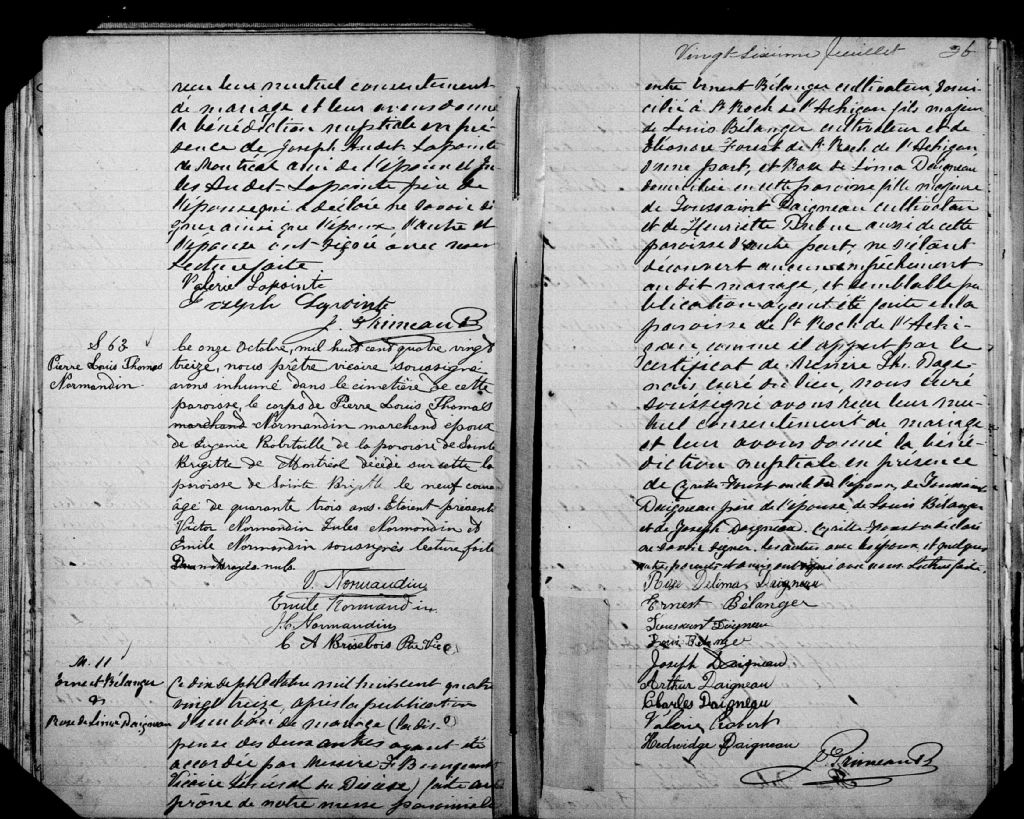 reçu leur mutuel consentement
de mariage et leur avons donné
la bénédiction nuptiale en pré-
sence de Joseph Audet Lapointe
de Montréal ami de l'époux et Ju-
les Audet Lapointe père de
l'épouse qui a déclaré ne savoir si-
gner ainsi que l'époux, l'autre et
l'épouse ont signé avec nous
Lecture faite
Valérie Lapointe
Joseph Lapointe
J. Primeau P
S 63
Pierre Louis Thomas
Normandin
Le onze Octobre, mil huit cent quatre vingt
treize, nous prêtre vicaire soussigné
avons inhumé dans le cimetière de cette
paroisse, le corps de Pierre Louis Thomas
marchand Normandin marchand époux
de Eugenie Robitaille de la paroisse de Sainte
Brigitte de Montréal décédé sur cette la
paroisse de Sainte Brigitte le neuf courant
âgé de quarante trois ans. Etaient présents
Victor Normandin Jules Normandin et
Emile Normandin soussignés lecture faite
nuls
V. Normandin
Emile Normandin
J. E. Normandin
C A Brisebois Ptre Vic
M. 11
Ernest Bélanger
&
Rose de Lima Daigneau
Ce dix sept Octobre mil huit cent quatre
vingt treize, après la publication
d'un ban de mariage (la dis-
pense des deux autres ayant été
accordée par Messire F. Bourgeault
Vicaire Général du Diocèse) faite au
prône de notre messe paroissiale
Vingt-sixième feuillet 26
entre Ernest Bélanger cultivateur, domi-
cilié à St Roch de l'Achigan fils majeur
de Louis Bélanger cultivateur et de
Eléonore Forest de St Roch de l'Achigan,
d'une part, et Rose de Lima Daigneau
domiciliée en cette paroisse fille majeure
de Toussaint Daigneau cultivateur
et de Henriette aussi de cette
paroisse d'autre part, ne s'étant
découvert aucun empêchement
au dit mariage, et semblable pu-
blication ayant été faite en la
paroisse de St Roch de l'Achi-
gan comme il appert par le
certificat de Messire Th. Dage-
nais curé du lieu, nous curé
soussigné avons reçu leur mu-
tuel consentement de mariage
et leur avons donné la béné-
diction nuptiale en présence
de Cyrille Forest oncle de l'époux, de Toussaint
Daigneau père de l'épouse, de Louis Bélanger
et de Joseph Daigneau. Cyrille Forest a déclaré
ne savoir signer. les autres avec les époux et quelques
autres parents et amis ont signé avec nous. Lecture faite.
Rose Delima Daigneau
Ernest Bélanger
Toussaint Daigneau
Louis Bélanger
Joseph Daigneau
Arthur Daigneau
Charles Daigneau
Valérie
Hedwidge Daigneau
J. Primeau P